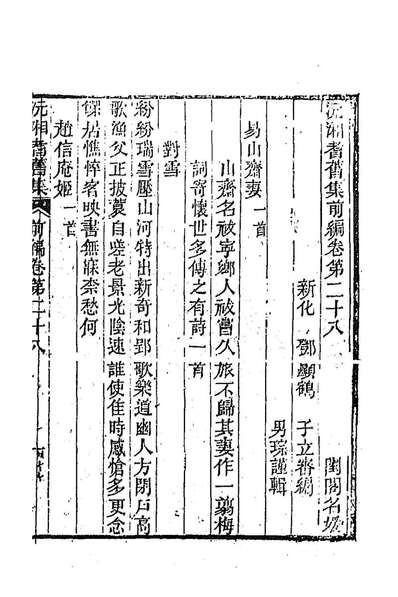 沅湘耆舊集前編卷第二十八
閨閣名媛
新化 鄧顯鶴 子立審編
男琮謹輯
易山齋妻一首
山齋名祓寧鄉人祓嘗久旅不歸其妻作一翦梅
詞寄懷世多傳之有詩一首
對雪
紛紛瑞雪壓山河特出新奇和郢歌樂道幽人方閉戶高
歌漁父正披蓑自嗟老景光陰速誰使佳時感愴多更念
鰥居憔悴客映書無寐柰愁何
趙信庵姬一首
沅湘耆舊集 前編卷第二十八